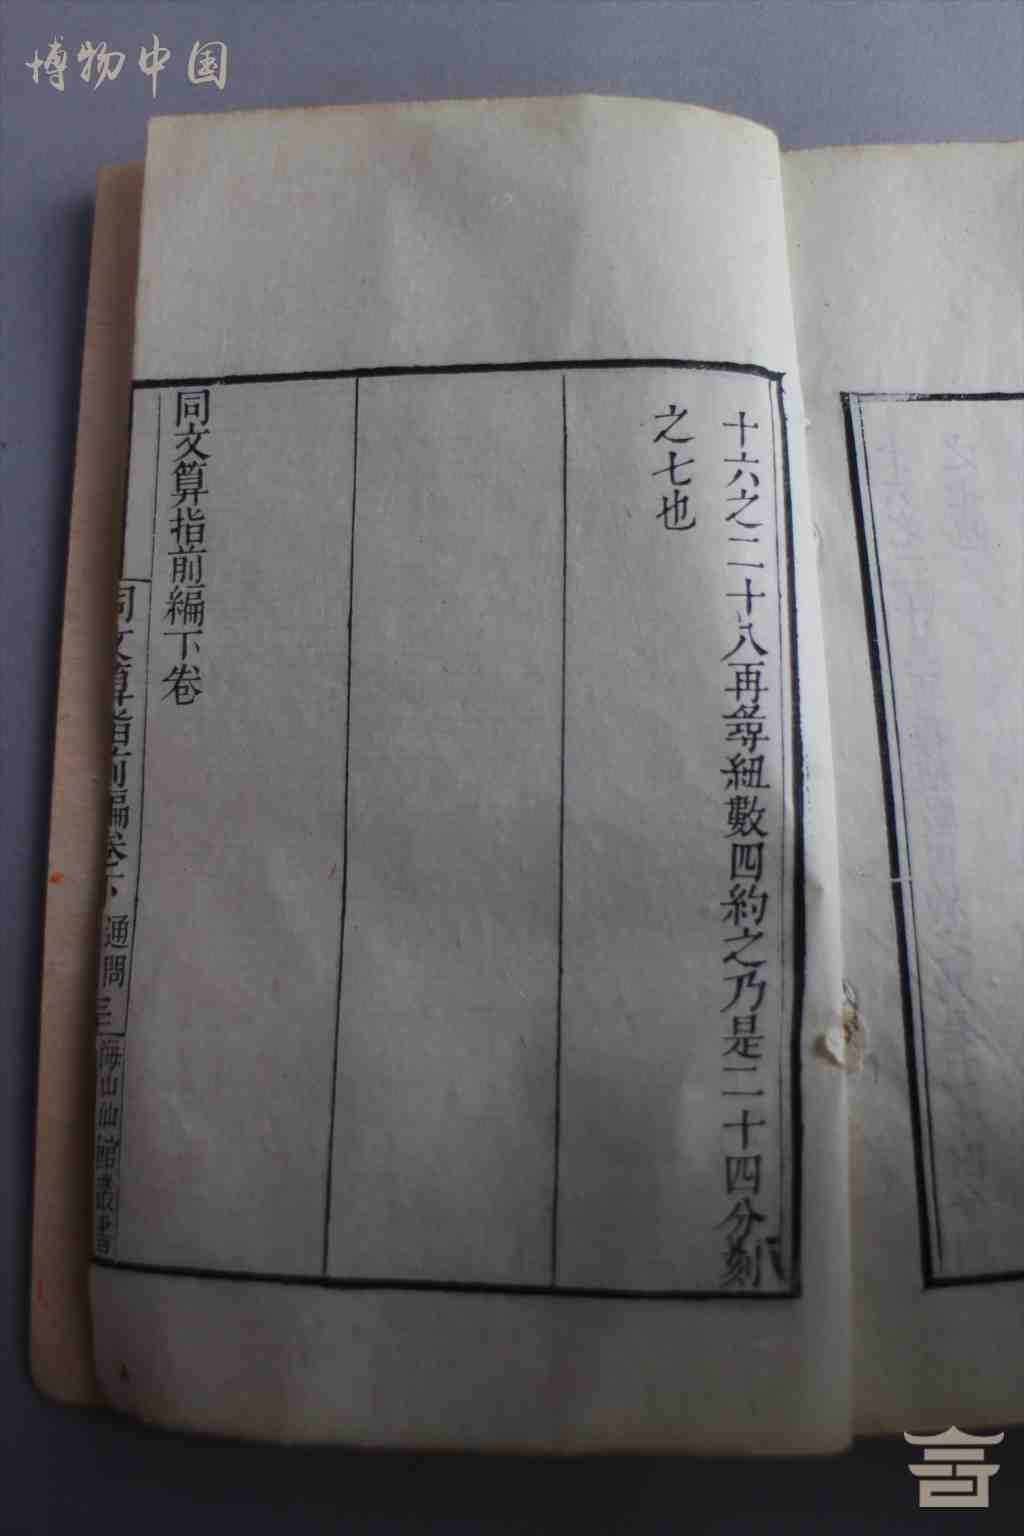 博物中国
十六之二十八再尋紐數四約之乃是二十四分刻
之七也
同文算指前編下卷
同文算指前編卷下 通問
海山仙館叢書